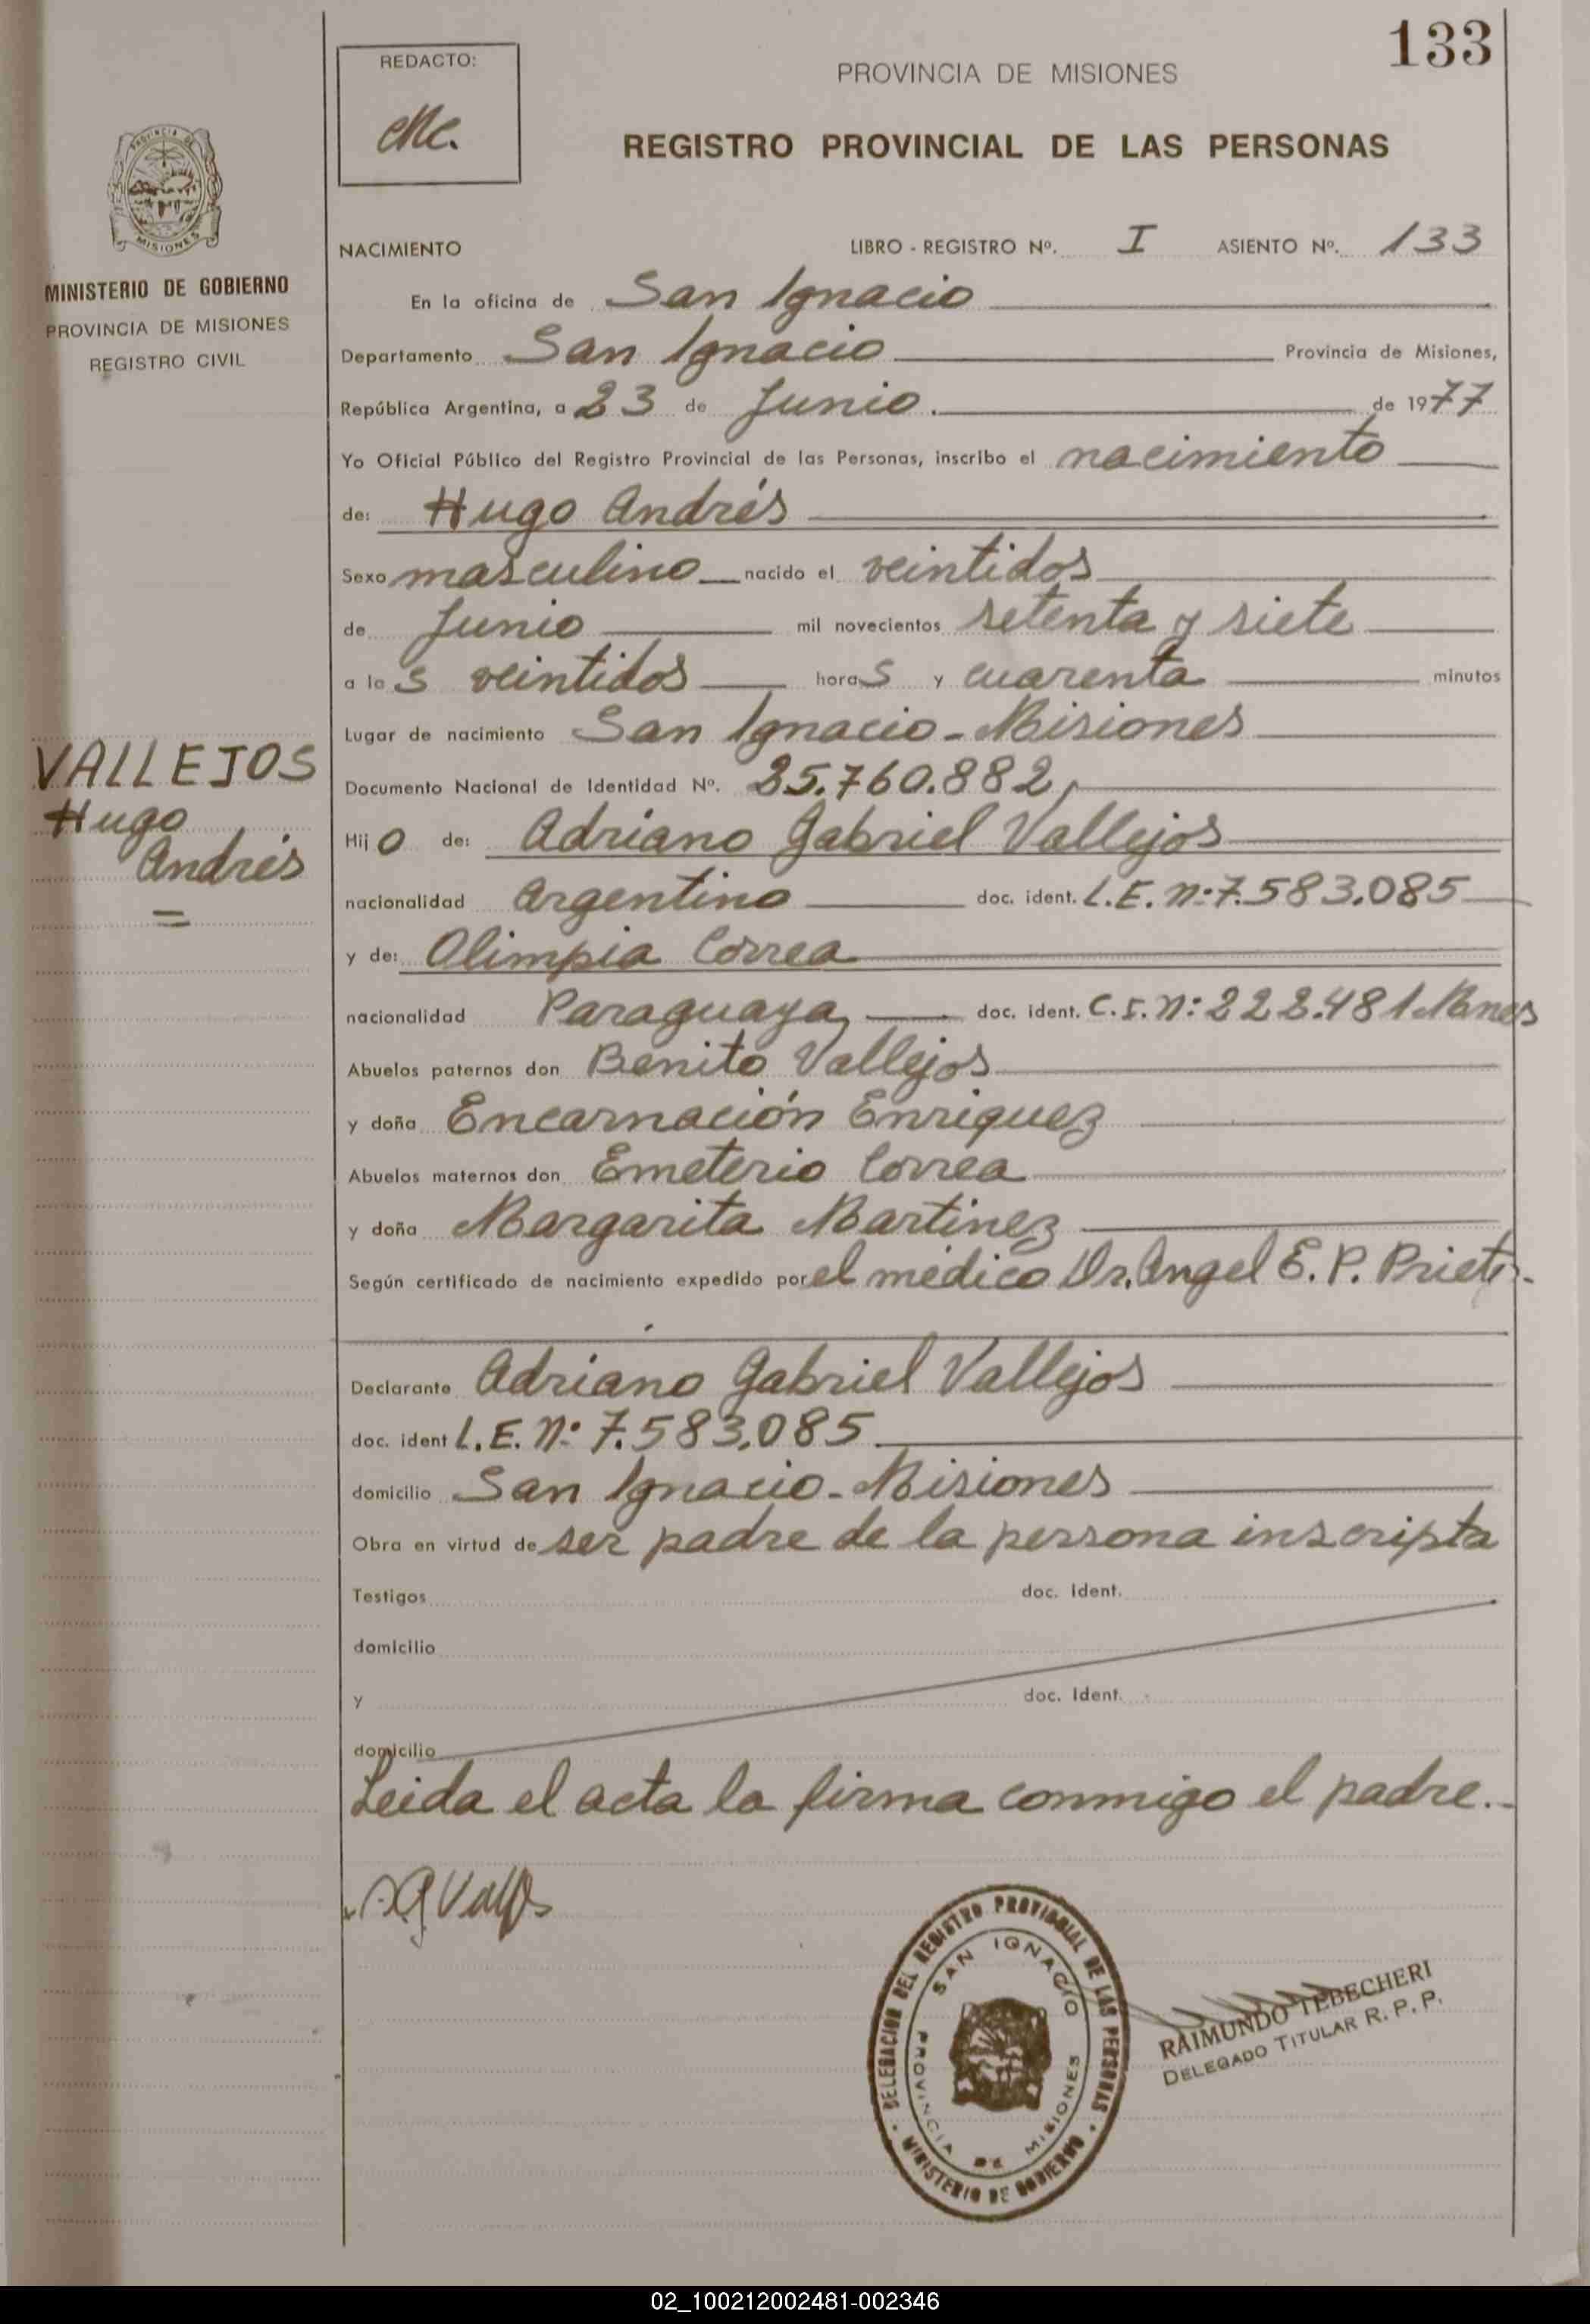 133
REDACTO:
PROVINCIA DE MISIONES
REGISTRO PROVINCIAL DE LAS PERSONAS
PROVINCIA DE
MISIONES
MINISTERIO DE GOBIERNO
PROVINCIA DE MISIONES
REGISTRO CIVIL
NACIMIENTO LIBRO - REGISTRO Nº. I ASIENTO Nº. 133
En la oficina de San Ignacio
Departamento San Ignacio Provincia de Misiones,
República Argentina, a 23 de Junio. de 1977
Yo Oficial Público del Registro Provincial de las Personas, inscribo el nacimiento
de: Hugo Andrés
Sexo masculino nacido el veintidos
de Junio mil novecientos setenta y siete
a las veintidos horas y cuarenta minutos
Lugar de nacimiento San Ignacio - Misiones
VALLEJOS
Hugo
Andrés
Documento Nacional de Identidad Nº. 25.760.882
Hijo de: Adriano Gabriel Vallejos
nacionalidad Argentino doc. ident. L.E. Nº 7.583.085
y de: Olimpia Correa
nacionalidad Paraguaya, doc. ident. C.I. Nº 222.481 Mnes
Abuelos paternos don Benito Vallejos
y doña Encarnación Enriquez
Abuelos maternos don Emeterio Correa
y doña Margarita Martinez
Según certificado de nacimiento expedido por el médico Dr. Angel E. P. Prieto.
Declarante Adriano Gabriel Vallejos
doc. ident L.E. Nº 7.583.085
domicilio San Ignacio - Misiones
Obra en virtud de ser padre de la persona inscripta
Testigos doc. ident.
domicilio
y doc. Ident.
domicilio
Leida el acta la firma conmigo el padre.-
DELEGACION DEL REGISTRO PROVINCIAL DE LAS PERSONAS
MINISTERIO DE GOBIERNO
SAN IGNACIO
PROVINCIA DE MISIONES
RAIMUNDO TEBECHERI
DELEGADO TITULAR R. P. P.
02_100212002481-002346